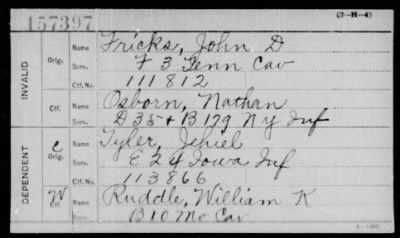 157397
(3-H-4)
INVALID
Orig.
Name Fricks, John D
Serv. F 3 Tenn Cav
Ctf. No. 111812
Ctf.
Name Osborn, Nathan
Serv. D 35 + B 179 N Y Inf
DEPENDENT
C
Orig.
Name Tyler, Jehiel
Serv. E 24 Iowa Inf
Ctf. No. 113866
W
Ctf.
Name Ruddle, William K
Serv. B 10 Mo Cav